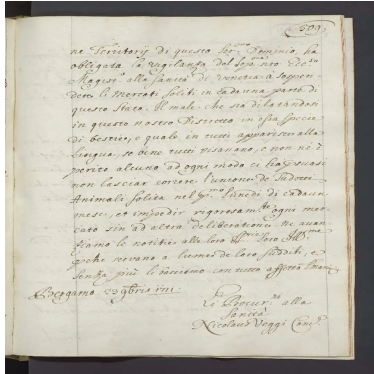 501
ne Territorij di questo Ser.mo Dominio, ha
obligata la vigilanza del
Magist.o alla Sanità di Venetia à sospen-
dere li Mercati soliti in cadauna parte di
questo Stato. Il male che sia dilatandosi
in questo nostro Distretto in ossa specie
di bestie, e quale in tutti apparisce alla
lingua, se bene tutti risanano, e non nè
perito alcuno ad ogni modo ci hà
non lasciar correre l'unione de
Animali solita nel p.mo Lunedi di cadaun
mese, et impedir rigorosam.te ogni mer-
cato sin ad altra deliberatione. Ne auan-
ziamo le notitie alle loro
perche seruano à lume de loro sudditi, e
senza più le riuerimo con tutto
Bergamo 23 9bris
Li Proued.ri alla
Sanità
Nicolaus Canc.